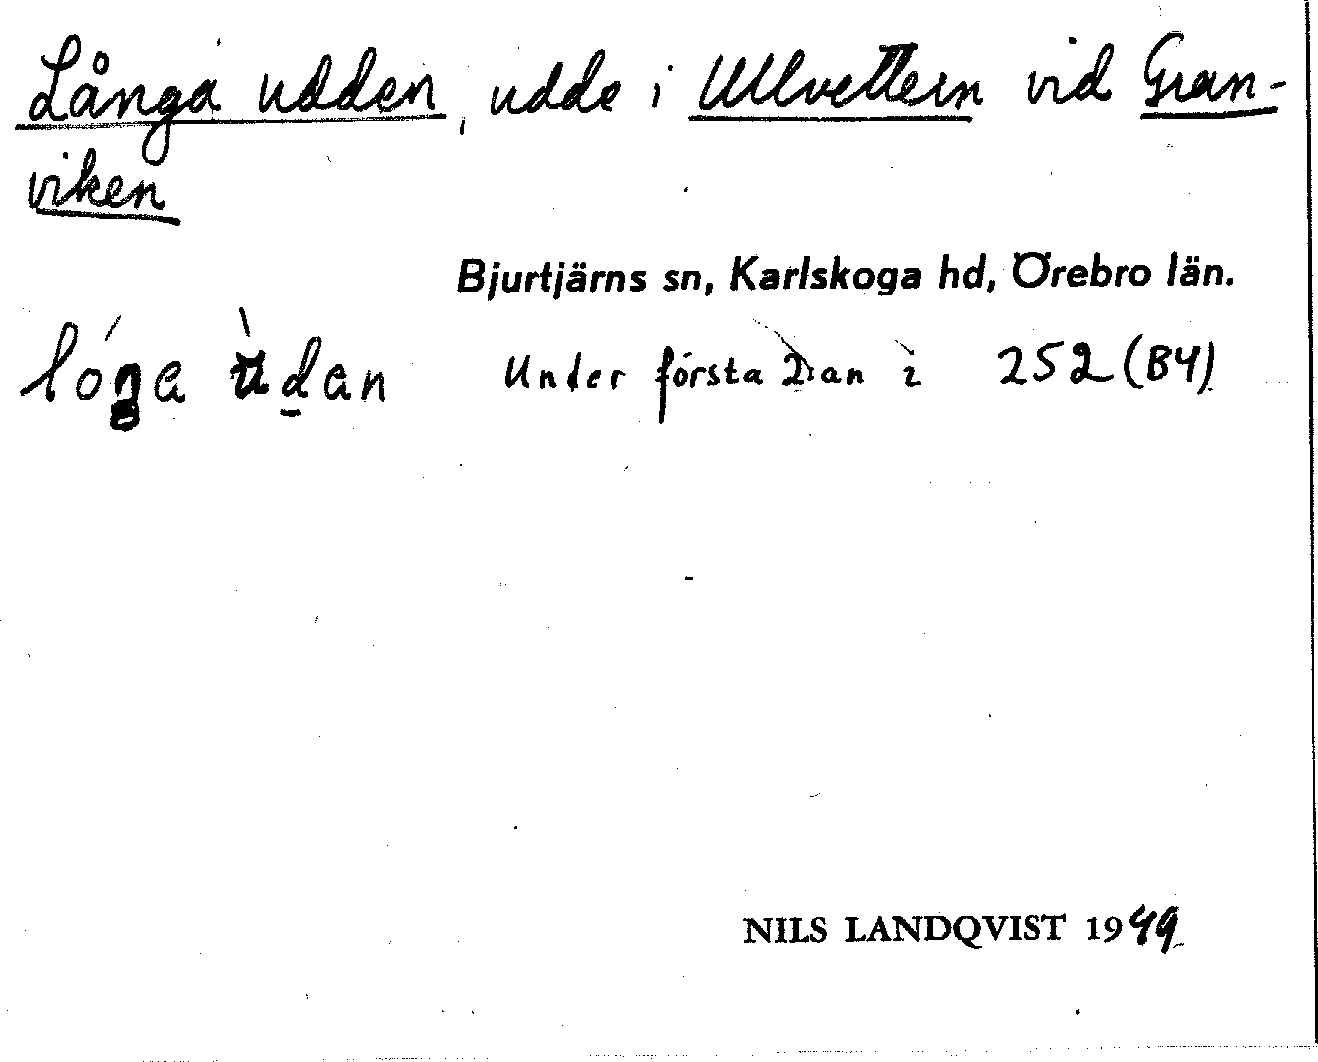 Långa udden, udde i Ullvettern vid Gran-
viken
Bjurtjärns sn, Karlskoga hd, Örebro län.
lóŋa ùdan Under första 2an i 252 (B4)
NILS LANDQVIST 1949